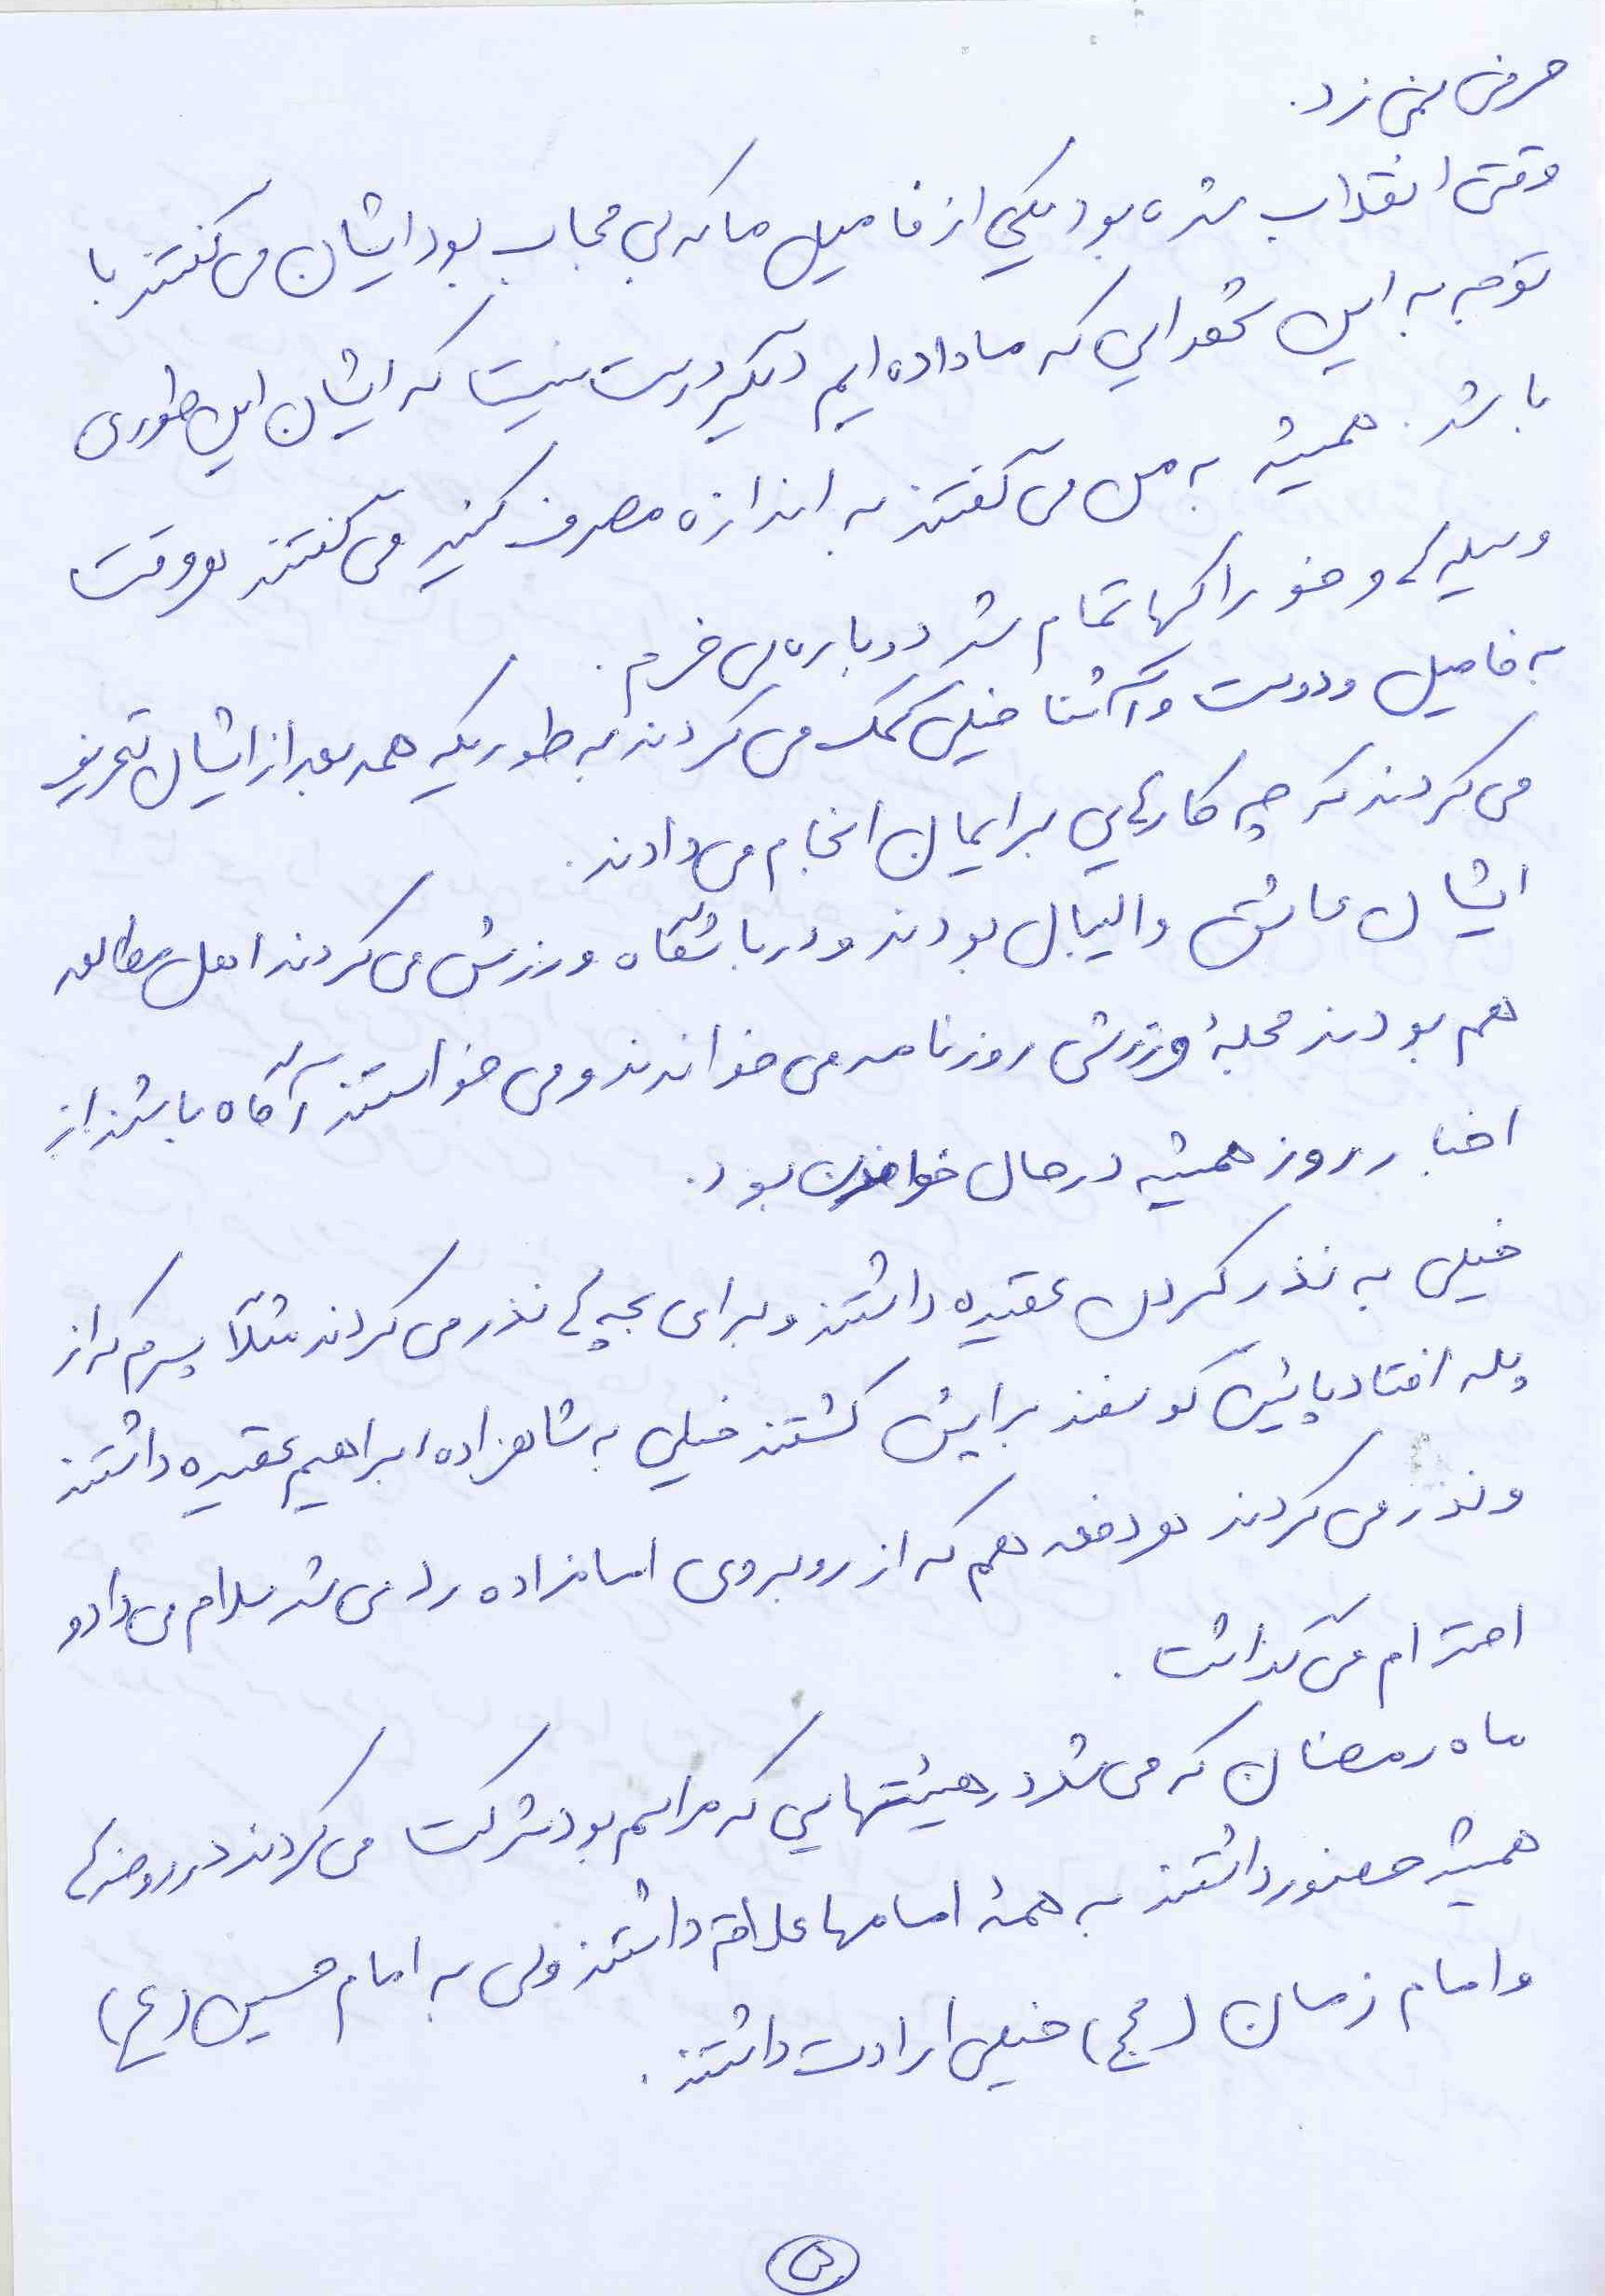 حرفی نمی زد.
وقتی انقلاب شده بود یکی از فامیل ما که بی حجاب بود ایشان می گفتند با
توجه به این شهدایی که ما داده ایم دیگر درست نیست که ایشان این طوری
باشد. همیشه به من می گفتند به اندازه مصرف کنید می گفتند هر وقت
وسیله ها و خوراکیها تمام شد دوباره می خرم.
به فامیل و دوست و آشنا خیلی کمک می کردند به طوریکه همه بعد از ایشان تعریف
می کردند که چه کارهایی برایمان انجام می دادند.
ایشان عاشق والیبال بودند و در باشگاه ورزش می کردند اهل مطالعه
هم بودند مجلۀ ورزشی روزنامه می خواندند و می خواستند آگاه باشند از
اخبار روز همیشه در حال خواندن بود.
خیلی به نذر کردن عقیده داشتند و برای بچه ها نذر می کردند مثلاً پسرم که از
پله افتاد پائین گوسفند برایش کشتند خیلی به شاهزاده ابراهیم عقیده داشتند
و نذر می کردند هر دفعه هم که از روبروی امامزاده رد می شد سلام می داد و
احترام می گذاشت.
ماه رمضان که می شد در هیئتهایی که مراسم بود شرکت می کردند در روضه ها
همیشه حضور داشتند به همۀ امامها علاقه داشتند ولی به امام حسین (ع)
و امام زمان (عج) خیلی ارادت داشتند.